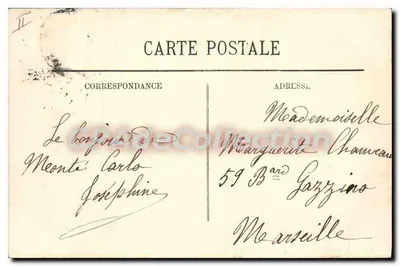 II
CARTE POSTALE
CORRESPONDANCE
ADRESSE
Le bonjour de
Monte Carlo
Joséphine
Mademoiselle
Marguerite
59 Bard Gazzino
Marseille